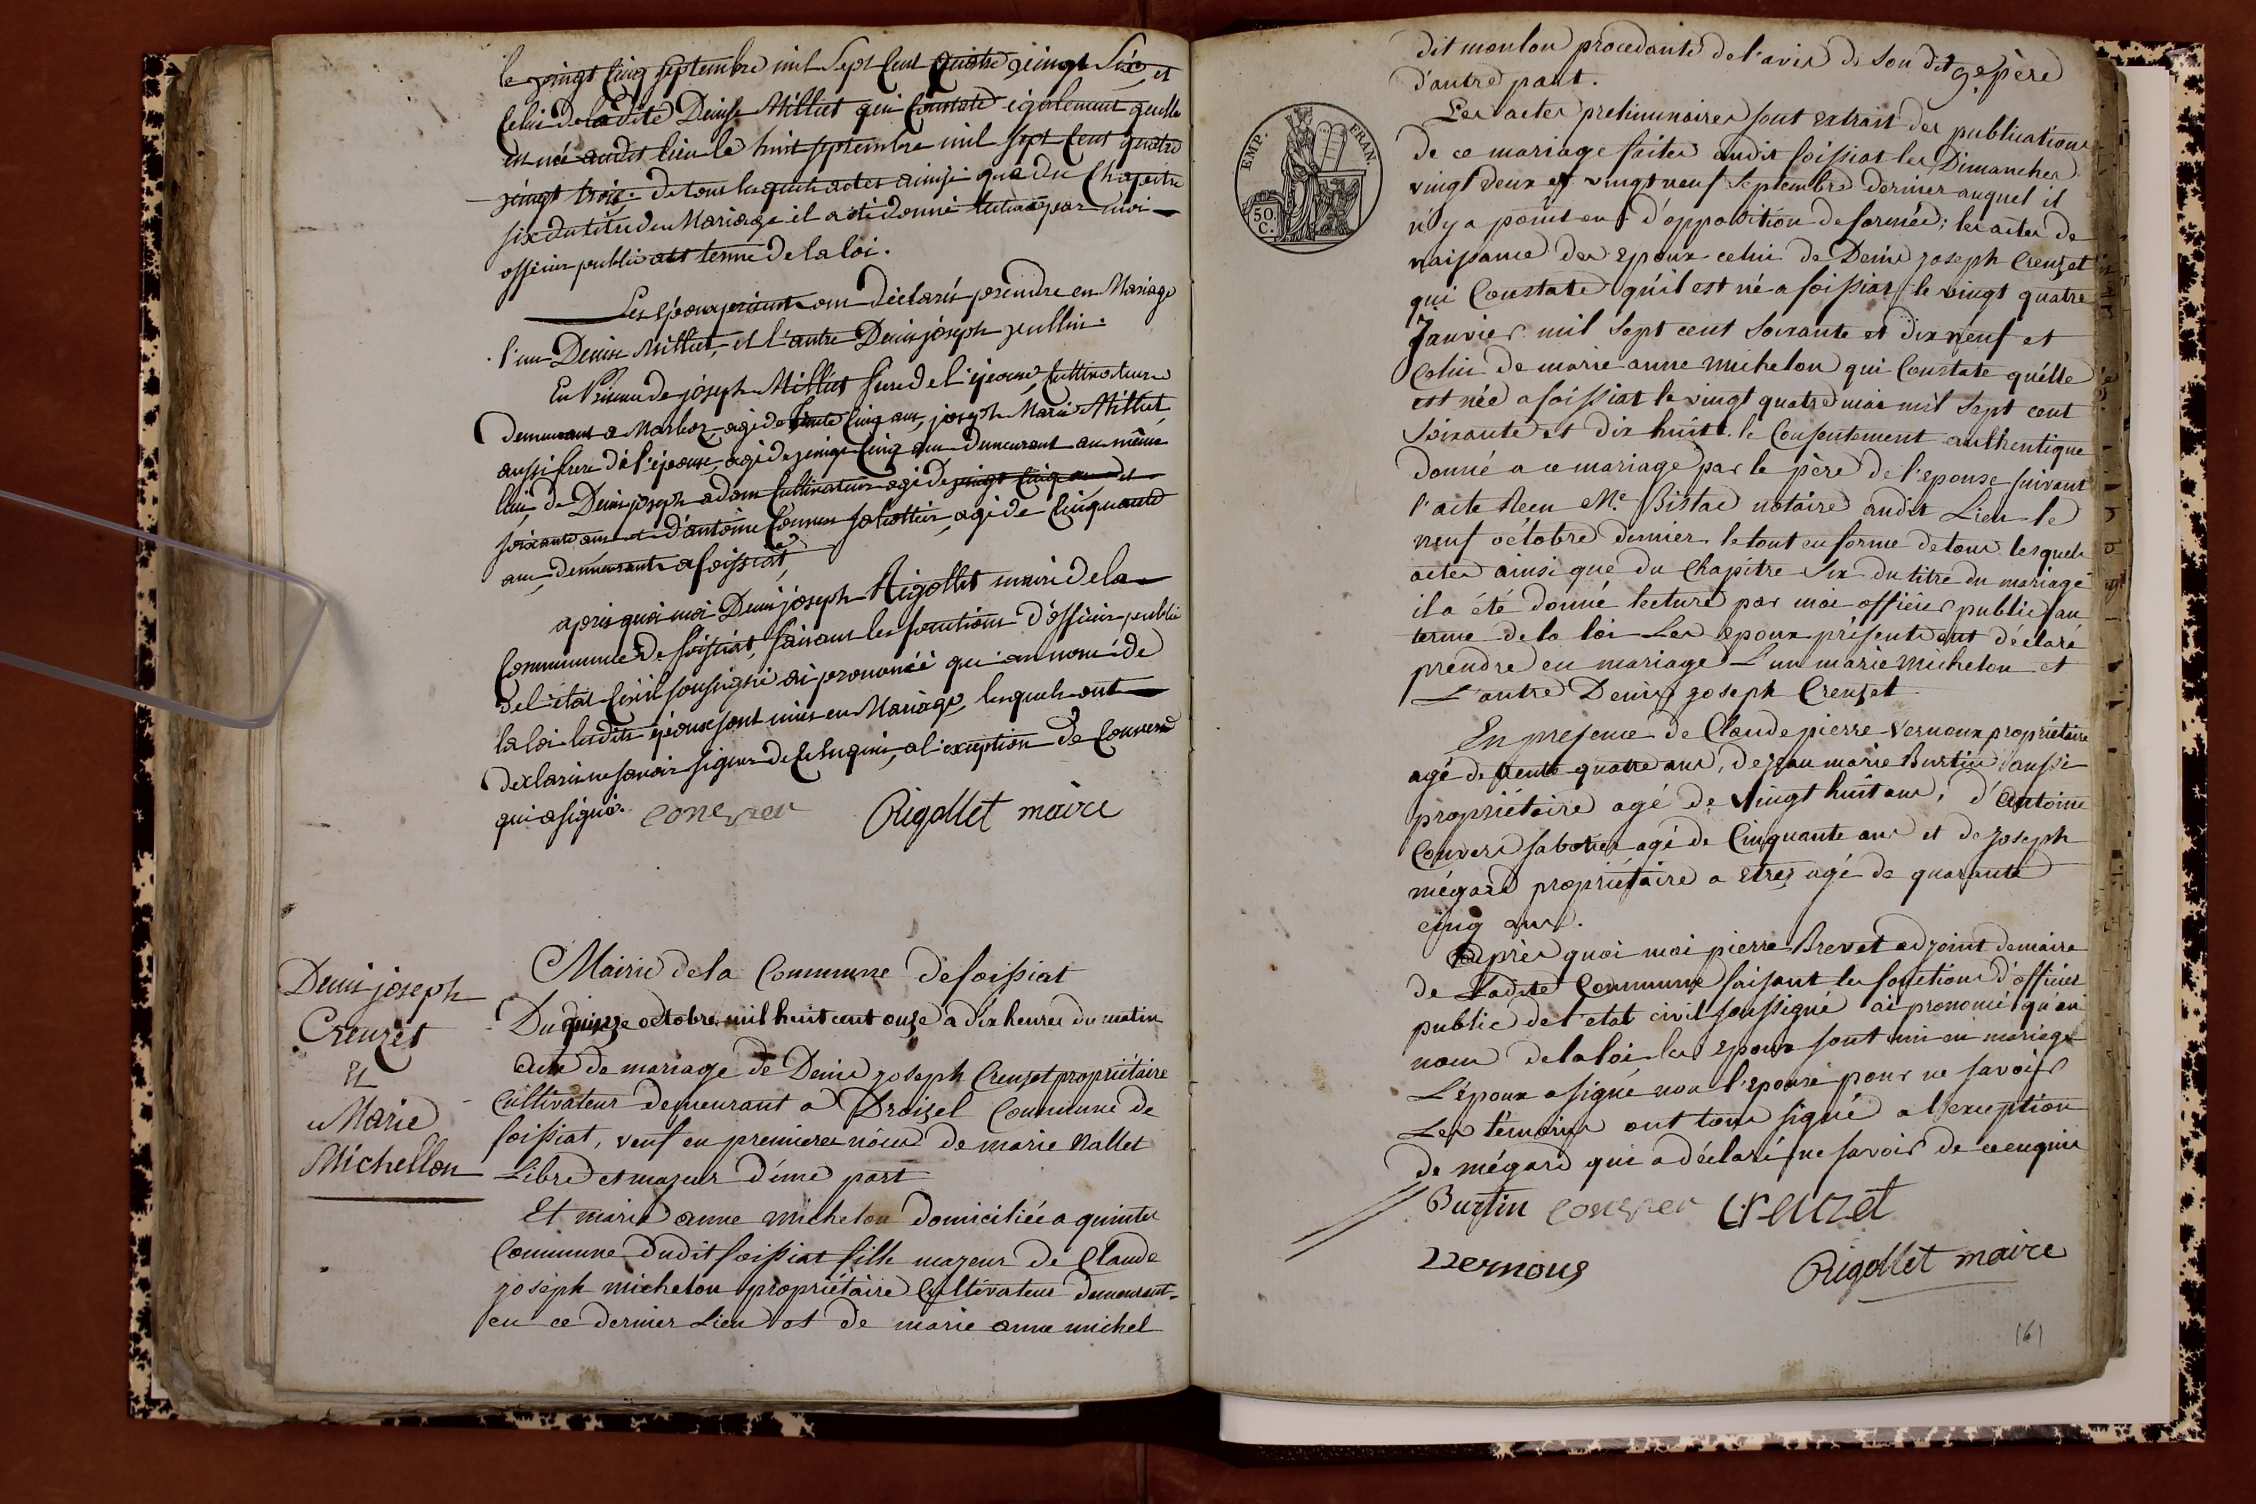 le vingt Cinq septembre mil Sept Cent Quatre vingt Six, et
Celui de la dite Denise Millet qui Constate également quelle
est née audit lieu le huit septembre mil sept Cent quatre
vingt trois. de tous lesquels actes ainsi que du Chapitre
six du titre du Mariage il a été donné lecture par moi
officier public aux terme de la loi.
Les époux présents ont déclaré prendre en Mariage
l'un Denise Millet, et l'autre Denis joseph
En Présence de joseph Millet frere de l'épouse, Cultivateur
demeurant a Marboz agé de trente Cinq ans, joseph Marie Millet
aussi frere de l'épouse, agé de vingt Cinq ans demeurant au même
lieu, de Denis joseph adam Cultivateur agé de vingt Cinq ans et
soixante ans et d'antoine Convers sabottier, agé de Cinquante
ans, demeurants a foissiat,
après quoi moi Denis joseph Rigollet maire de la
Commune de foissiat, faisant les fonctions d'officier public
de l'état Civil soussigné ai prononcé qui au nom de
la loi lesdits époux sont unis en Mariage, lesquels ont
déclaré ne savoir signer de Ce enquis, a l'exception de Convers
qui a signé. Conever Rigollet maire
Denis joseph
Creuzet
Et
Marie
Michellon
Mairie de la Commune de foissiat
Du quinze octobre mil huit cent onze a dix heures du matin
acte de mariage de Denis joseph Creuzet propriétaire
Cultivateur demeurant a Droizel Commune de
foissiat, veuf en premieres nôces de marie Nallet
Libre et majeur d'une part
Et marie anne michelon domiciliée a quintes
Commune dudit foissiat fille majeur de Claude
joseph michelon propriétaire Cultivateur demeurant
en ce dernier Lieu et de marie anne michel
dit monlon procedante de l'avis de son dit père
d'autre part.
Les actes preliminaires sont extrait des publications
de ce mariage faites audit foissiat les Dimanches
vingt deux et vingt neuf septembre dernier auquel il
n'y a point eu d'opposition de formée; les actes de
naissance des epoux celui de Denis joseph Creuzet
qui Constate qu'il est né a foissiat le vingt quatre
Janvier mil sept cent soixante et dix neuf et
Celui de marie anne michelon qui Constate qu'elle
est née a foissiat le vingt quatre mai mil sept cent
soixante et dix huit. le Consentement authentique
donné a ce mariage par le père de l'epouse suivant
l'acte Recu Me. notaire audit Lieu le
neuf octobre dernier le tout en forme de tous lesquels
actes ainsi que du Chapitre six du titre du mariage
il a été donné lecture par moi officier public au
terme de la loi Les epoux présents ont déclaré
prendre en mariage L'un marie michelon et
L'autre Denis joseph Creuzet
En presence de Claude pierre Vernoux propriétaire
agé de trente quatre ans, de jean marie Burtin aussi
propriétaire agé de vingt huit ans, d'antoine
Convers sabotier agé de Cinquante ans et de joseph
mégard propriétaire a etrez agé de quarante
cinq ans.
après quoi moi pierre Brevet adjoint de maire
de Ladite Commune faisant les fonctions d'officier
public de l'etat civil soussigné ai prononcé qu'au
nom de la loi les epoux sont uni en mariage
L'époux a signé non l'epouse pour ne savoir
Les témoins ont tous signé a l'exception
de mégard qui a déclaré ne savoir de ce enquis
Burtin Conever Creuzet
Vernous Rigollet maire
EMP. FRAN.
50.
C.
161